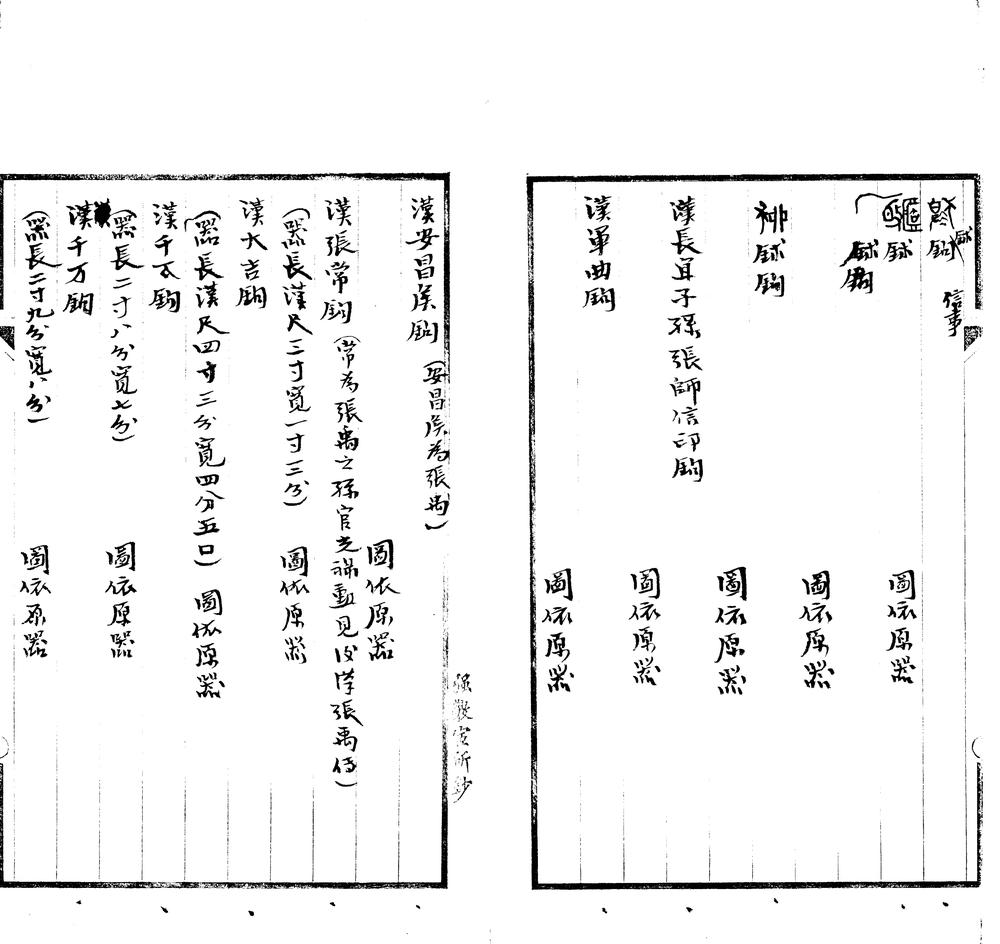 鉥鉤 信事
鉥
鉥鉤
圖依原器
鉥鉤
圖依原器
漢長宜子孫張師信印鉤
圖依原器
漢軍曲鉤
圖依原器
圖依原器
漢安昌侯鉤（安昌侯為張禹）
圖依原器
漢張常鉤（常為張禹之孫官光祿勳見後漢張禹傳）
（器長漢尺三寸寬一寸三分）
圖依原器
漢大吉鉤
（器長漢尺四寸三分寬四分五口）
圖依原器
漢千万鉤
（器長二寸八分寬七分）
圖依原器
漢千万鉤
（器長二寸九分寬八分）
圖依原器
所鈔